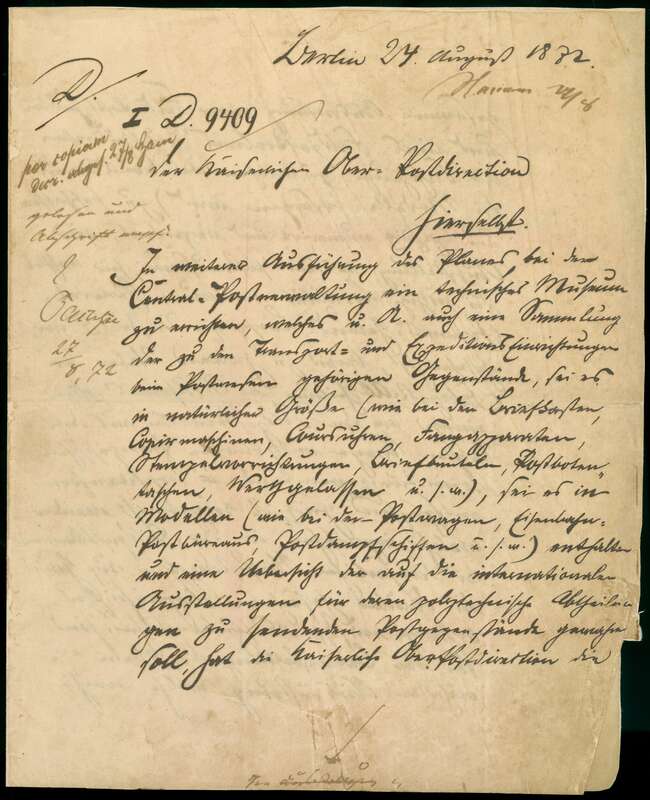 Berlin 24. August 1872.
I D. 9409
per copiam
27/8
Der Kaiserlichen Ober-Postdirection
hierselbst.
gelesen und
Abschrift
27/8, 72
In weiterer Ausführung des Planes, bei der
Central-Postverwaltung ein technisches Museum
zu errichten, welches u. A. auch eine Sammlung
der zu den Transport- und Expeditions Einrichtungen
beim Postwesen gehörigen Gegenstände, sei es
in natürlicher Größe (wie bei den Briefkasten,
Copirmaschinen, Coursuhren, Fangapparaten,
Stempelvorrichtungen, Briefbeuteln, Postboten-
taschen, Werthgelassen u. s. w.), sei es in
Modellen (wie bei den Postwagen, Eisenbahn-
Postbüreaus, Postdampfschiffen u. s. w.) enthalten
und eine Uebersicht der auf die internationalen
Ausstellungen für deren polytechnische Abtheilun
gen zu sendenden Postgegenstände gewähren
soll, hat die Kaiserliche Ober-Postdirection die